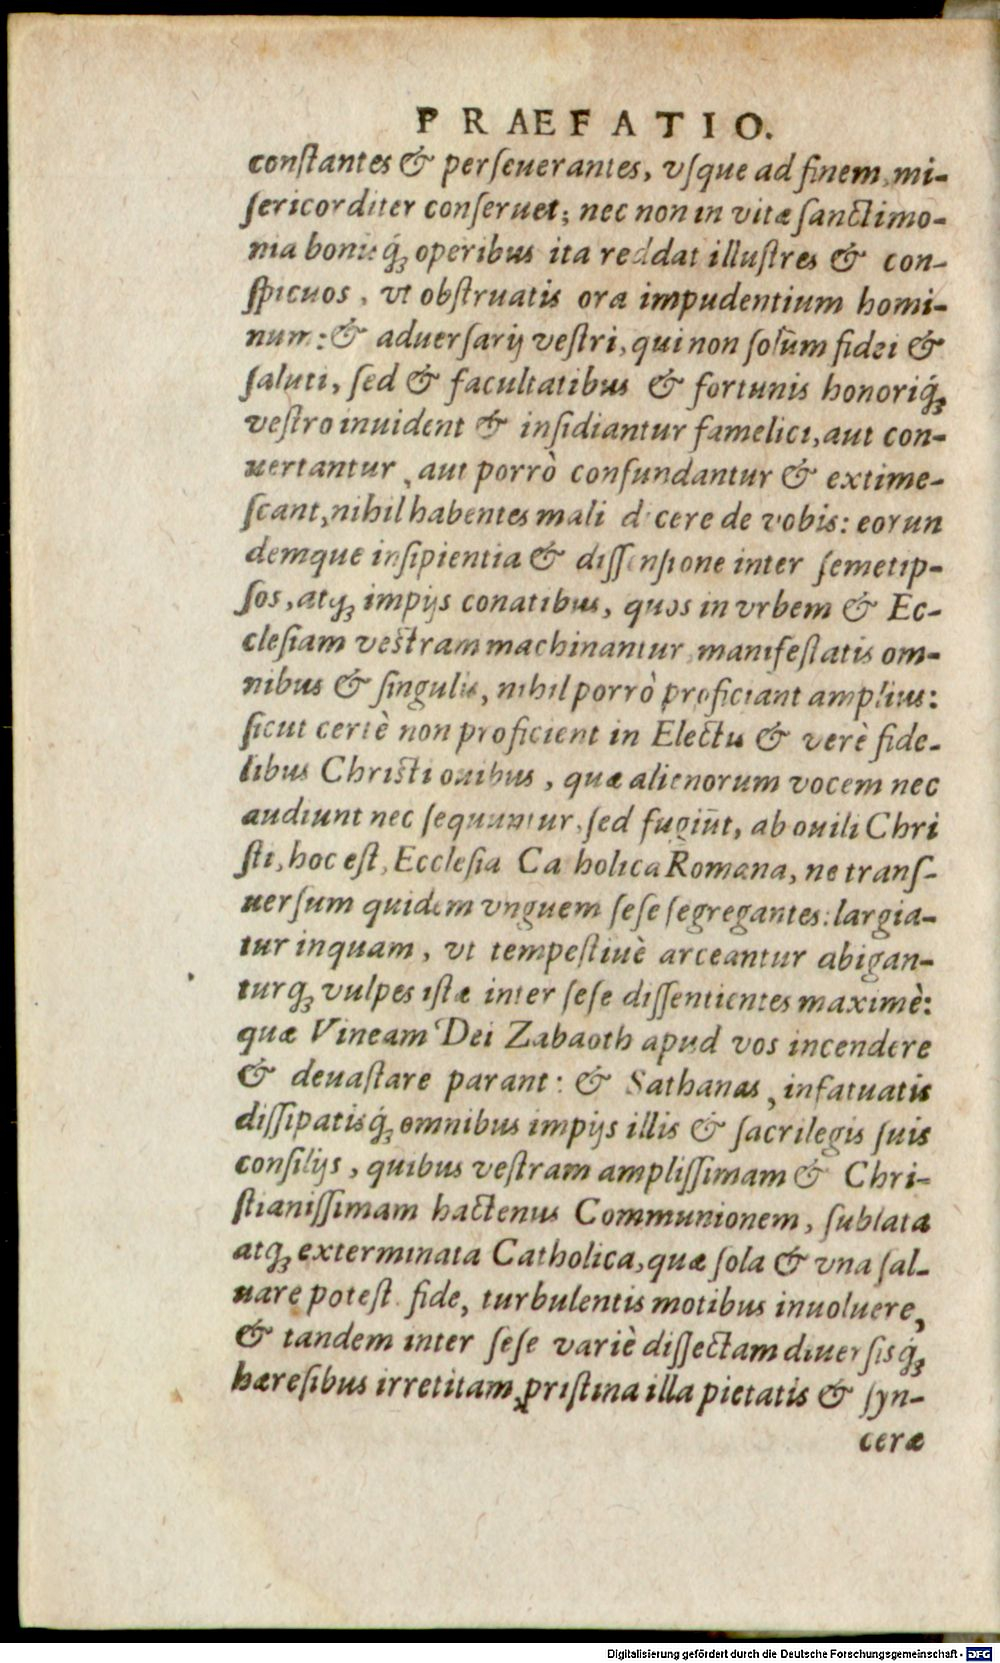 PRAEFATIO.
conſtantes & perſeuerantes, vſque ad finem, mi-
ſericorditer conſeruet; nec non in vitæ ſanctimo-
nia bonisq́ꝫ operibus ita reddat illuſtres & con-
ſpicuos, vt obſtruatis ora impudentium homi-
num: & aduerſarij veſtri, qui non ſolùm fidei &
ſaluti, ſed & facultatibus & fortunis honoriq́ꝫ
veſtro inuident & inſidiantur famelici, aut con-
uertantur, aut porrò confundantur & extime-
ſcant, nihil habentes mali dicere de vobis: eorun
demque inſipientia & diſſenſione inter ſemetip-
ſos, atqꝫ impijs conatibus, quos in vrbem & Ec-
cleſiam veſtram machinantur, manifeſtatis om-
nibus & ſingulis, nihil porrò proficiant amplius:
ſicut certè non proficient in Electis & verè fide-
libus Chriſti ouibus, quæ alienorum vocem nec
audiunt nec ſequuntur, ſed fugiūt, ab ouili Chri
ſti, hoc eſt, Eccleſia Catholica Romana, ne tranſ-
uerſum quidem vnguem ſeſe ſegregantes: largia-
tur inquam, vt tempeſtiuè arceantur abigan-
turqꝫ vulpes iſtæ inter ſeſe diſſentientes maximè:
quæ Vineam Dei Zabaoth apud vos incendere
& deuaſtare parant: & Sathanas, infatuatis
diſſipatisq́ꝫ omnibus impijs illis & ſacrilegis ſuis
conſilijs, quibus veſtram ampliſſimam & Chri-
ſtianiſſimam hactenus Communionem, ſublata
atqꝫ exterminata Catholica, quæ ſola & vna ſal-
uare poteſt fide, turbulentis motibus inuoluere,
& tandem inter ſeſe variè diſſectam diuerſisq́ꝫ
hæreſibus irretitam, priſtina illa pietatis & ſyn-
ceræ
Digitalisierung gefördert durch die Deutsche Forschungsgemeinschaft - DFG